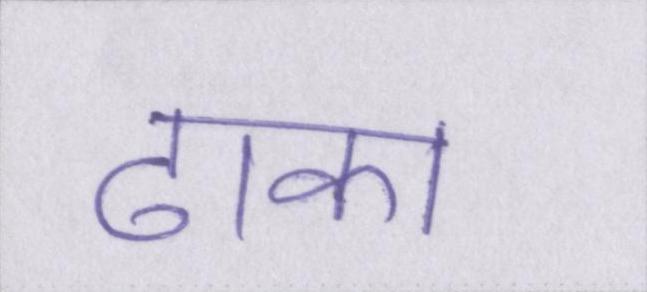 ढाका